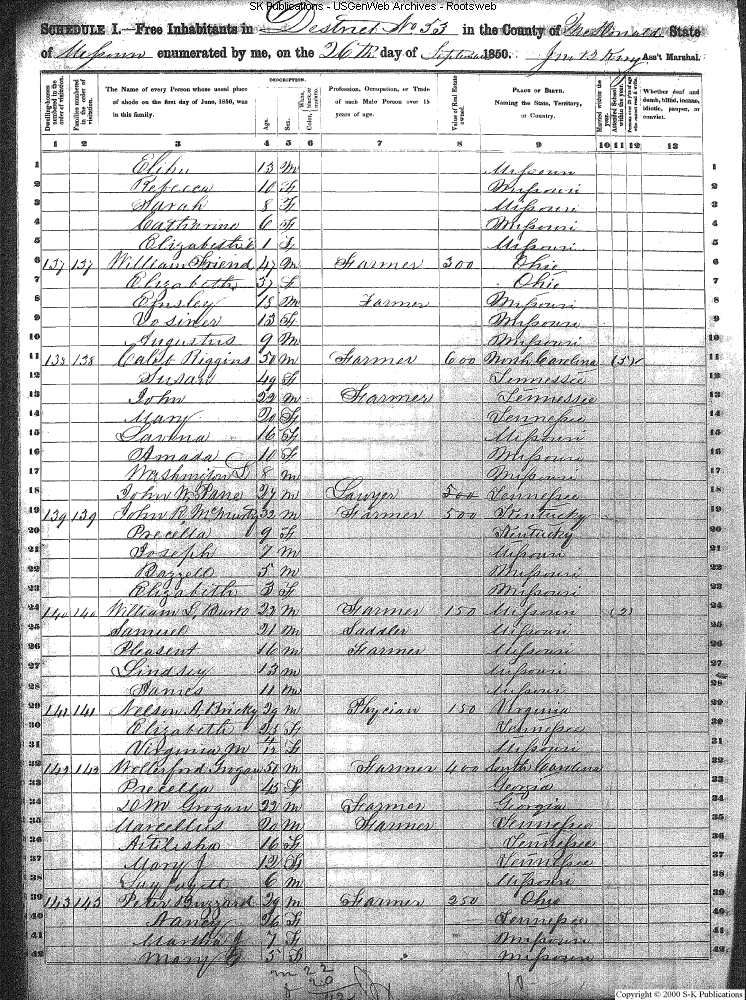 SK Publications - USGenWeb Archives - Rootsweb
SCHEDULE I.—Free Inhabitants in District No 53 in the County of McDonald State
of Missouri enumerated by me, on the 26th day of September 1850. Ass't Marshal.
Dwelling-houses numbered in the order of visitation.
Families numbered in the order of visitation.
The Name of every Person whose usual place of abode on the first day of June, 1850, was in this family.
DESCRIPTION.
Age.
Sex.
Color, White, black, or mulatto.
Profession, Occupation, or Trade of each Male Person over 15 years of age.
Value of Real Estate owned.
PLACE OF BIRTH. Naming the State, Territory, or Country.
Married within the year.
Attended School within the year.
Persons over 20 y'rs of age who cannot read & write.
Whether deaf and dumb, blind, insane, idiotic, pauper, or convict.
1 2 3 4 5 6 7 8 9 10 11 12 13
1 Elihu 13 M Missouri 1
2 Rebecca 10 F Missouri 2
3 Sarah 8 F Missouri 3
4 Catharine 6 F Missouri 4
5 1 F Missouri 5
6 137 137 William Friend 47 M Farmer 300 Ohio 6
7 Elizabeth 37 F Ohio 7
8 Emsley 18 M Farmer Missouri 8
9 13 F Missouri 9
10 Augustus 9 M Missouri 10
11 138 138 Caleb Riggins 50 M Farmer 600 North Carolina (5) 11
12 Susan 49 F Tennessee 12
13 John 22 M Farmer Tennessee 13
14 Mary 20 F Tennessee 14
15 Lavena 16 F Missouri 15
16 Amada 10 F Missouri 16
17 8 M Missouri 17
18 John 27 M Lawyer 500 Tennessee 18
19 139 139 John R McMurtry 32 M Farmer 500 Kentucky 19
20 Precella 9 F Kentucky 20
21 Joseph 7 M Missouri 21
22 Bazzell 5 M Missouri 22
23 Elizabeth 3 F Missouri 23
24 140 140 William 22 M Farmer 150 Missouri (2) 24
25 Samuel 21 M Saddler Missouri 25
26 Pleasent 16 M Farmer Missouri 26
27 Lindsey 13 M Missouri 27
28 James 11 M Missouri 28
29 141 141 Nelson A. Bricky 29 M Phycian 150 Virginia 29
30 Elizabeth 25 F Tennessee 30
31 Virginia M 4/12 F Missouri 31
32 142 142 Wollerford Grogan 51 M Farmer 400 South Carolina 32
33 Precella 45 F Georgia 33
34 Grogan 22 M Farmer Georgia 34
35 Marcellus 20 M Farmer Tennessee 35
36 Artilisha 16 F Tennessee 36
37 Mary J 12 F Tennessee 37
38 6 M Missouri 38
39 143 143 Peter Buzzard 29 M Farmer 250 Ohio 39
40 Nancy 26 F Tennessee 40
41 Martha J 7 F Missouri 41
42 Mary 5 F Missouri 42
m 22
f 20
Copyright © 2000 S-K Publications